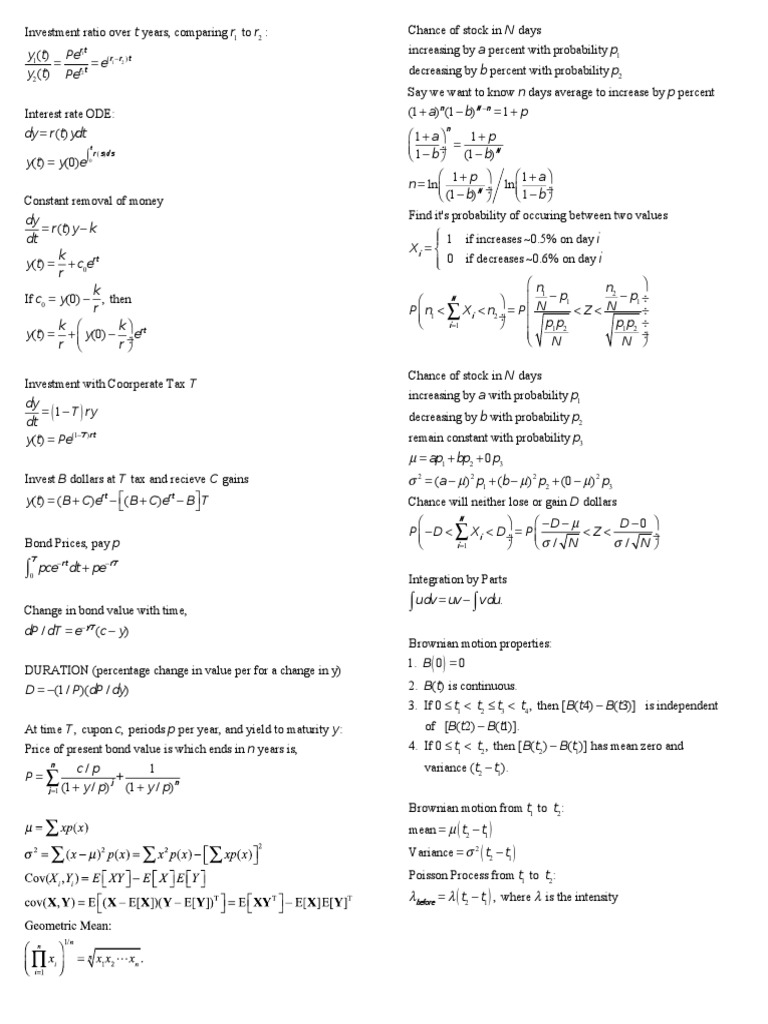 Investment ratio over t years, comparing r₁ to r₂ :
y₁(t) / y₂(t) = Pe^(r₁t) / Pe^(r₂t) = e^((r₁−r₂)t)
Interest rate ODE:
dy = r(t)ydt
y(t) = y(0)e^(∫₀ᵗ r(s)ds)
Constant removal of money
dy/dt = r(t)y − k
y(t) = k/r + c₀e^(rt)
If c₀ = y(0) − k/r, then
y(t) = k/r + (y(0) − k/r)e^(rt)
Investment with Coorperate Tax T
dy/dt = (1 − T)ry
y(t) = Pe^((1−T)rt)
Invest B dollars at T tax and recieve C gains
y(t) = (B + C)e^(rt) − [(B + C)e^(rt) − B]T
Bond Prices, pay p
∫₀ᵀ pce^(−rt)dt + pe^(−rT)
Change in bond value with time,
dP / dT = e^(−yT)(c − y)
DURATION (percentage change in value per for a change in y)
D = −(1 / P)(dP / dy)
At time T, cupon c, periods p per year, and yield to maturity y:
Price of present bond value is which ends in n years is,
P = ∑_(j=1)^n (c / p)/(1 + y / p)^j + 1/(1 + y / p)^n
μ = ∑ xp(x)
σ² = ∑(x − μ)² p(x) = ∑ x² p(x) − [∑ xp(x)]²
Cov(Xᵢ, Yᵢ) = E[XY] − E[X]E[Y]
cov(X, Y) = E[(X − E[X])(Y − E[Y])ᵀ] = E[XYᵀ] − E[X]E[Y]ᵀ
Geometric Mean:
(∏_(i=1)^n xᵢ)^(1/n) = ⁿ√(x₁x₂ ⋯ xₙ).
Chance of stock in N days
increasing by a percent with probability p₁
decreasing by b percent with probability p₂
Say we want to know n days average to increase by p percent
(1 + a)^n(1 − b)^(N−n) = 1 + p
((1 + a)/(1 − b))^n = (1 + p)/(1 − b)^N
n = ln((1 + p)/(1 − b)^N) / ln((1 + a)/(1 − b))
Find it's probability of occuring between two values
Xᵢ = { 1 if increases ~0.5% on day i
0 if decreases ~0.6% on day i
P(n₁ < ∑_(i=1)^N Xᵢ < n₂) = P((n₁/N − p₁)/√(p₁p₂/N) < Z < (n₂/N − p₁)/√(p₁p₂/N))
Chance of stock in N days
increasing by a with probability p₁
decreasing by b with probability p₂
remain constant with probability p₃
μ = ap₁ + bp₂ + 0p₃
σ² = (a − μ)² p₁ + (b − μ)² p₂ + (0 − μ)² p₃
Chance will neither lose or gain D dollars
P(−D < ∑_(i=1)^N Xᵢ < D) = P((−D − μ)/(σ / √N) < Z < (D − 0)/(σ / √N))
Integration by Parts
∫ udv = uv − ∫ vdu.
Brownian motion properties:
1. B(0) = 0
2. B(t) is continuous.
3. If 0 ≤ t₁ < t₂ ≤ t₃ < t₄, then [B(t4) − B(t3)] is independent
of [B(t2) − B(t1)].
4. If 0 ≤ t₁ < t₂, then [B(t₂) − B(t₁)] has mean zero and
variance (t₂ − t₁).
Brownian motion from t₁ to t₂:
mean = μ(t₂ − t₁)
Variance = σ²(t₂ − t₁)
Poisson Process from t₁ to t₂:
λ_before = λ(t₂ − t₁), where λ is the intensity